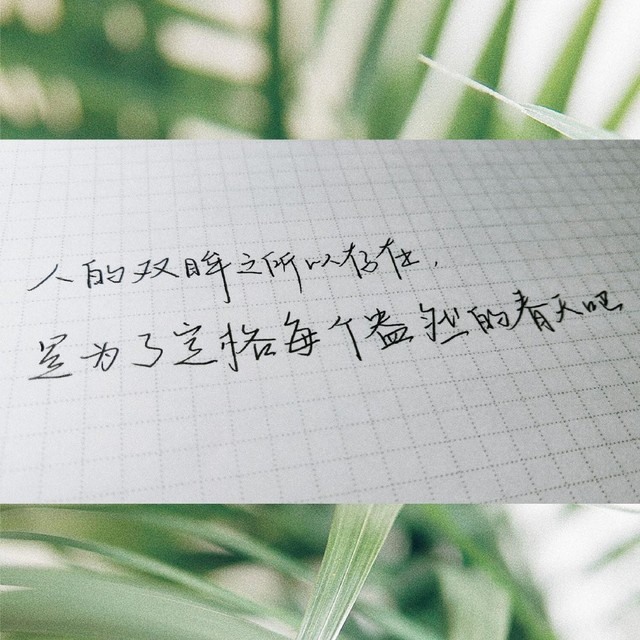 人的双眸之所以存在，
是为了定格每个盎然的春天吧